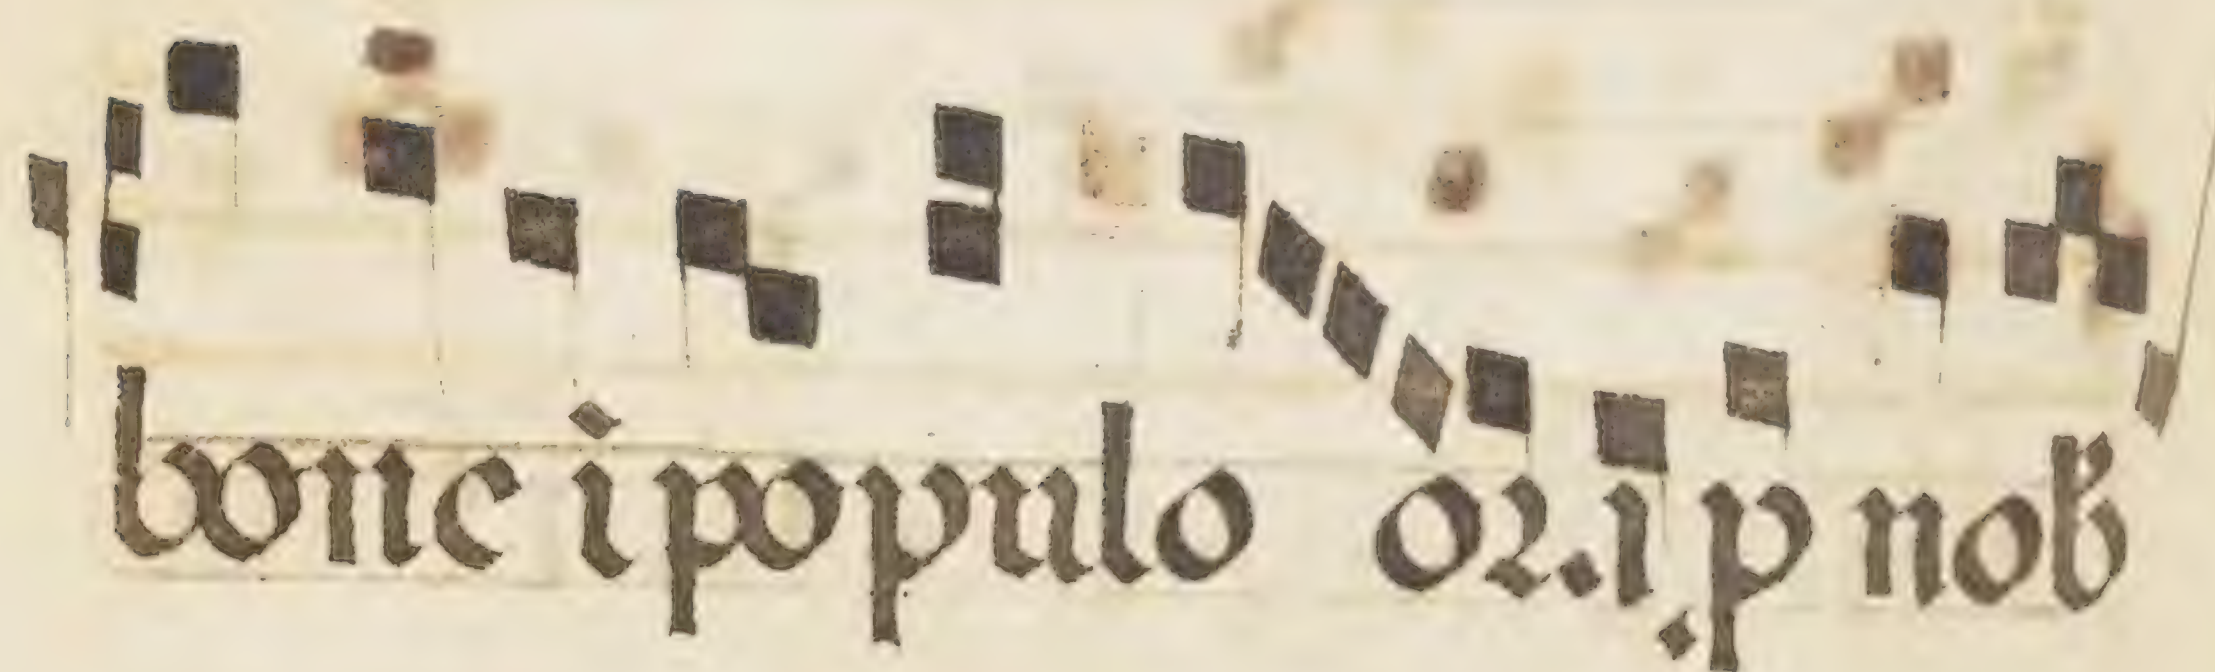 bone i populo or. i. p nob